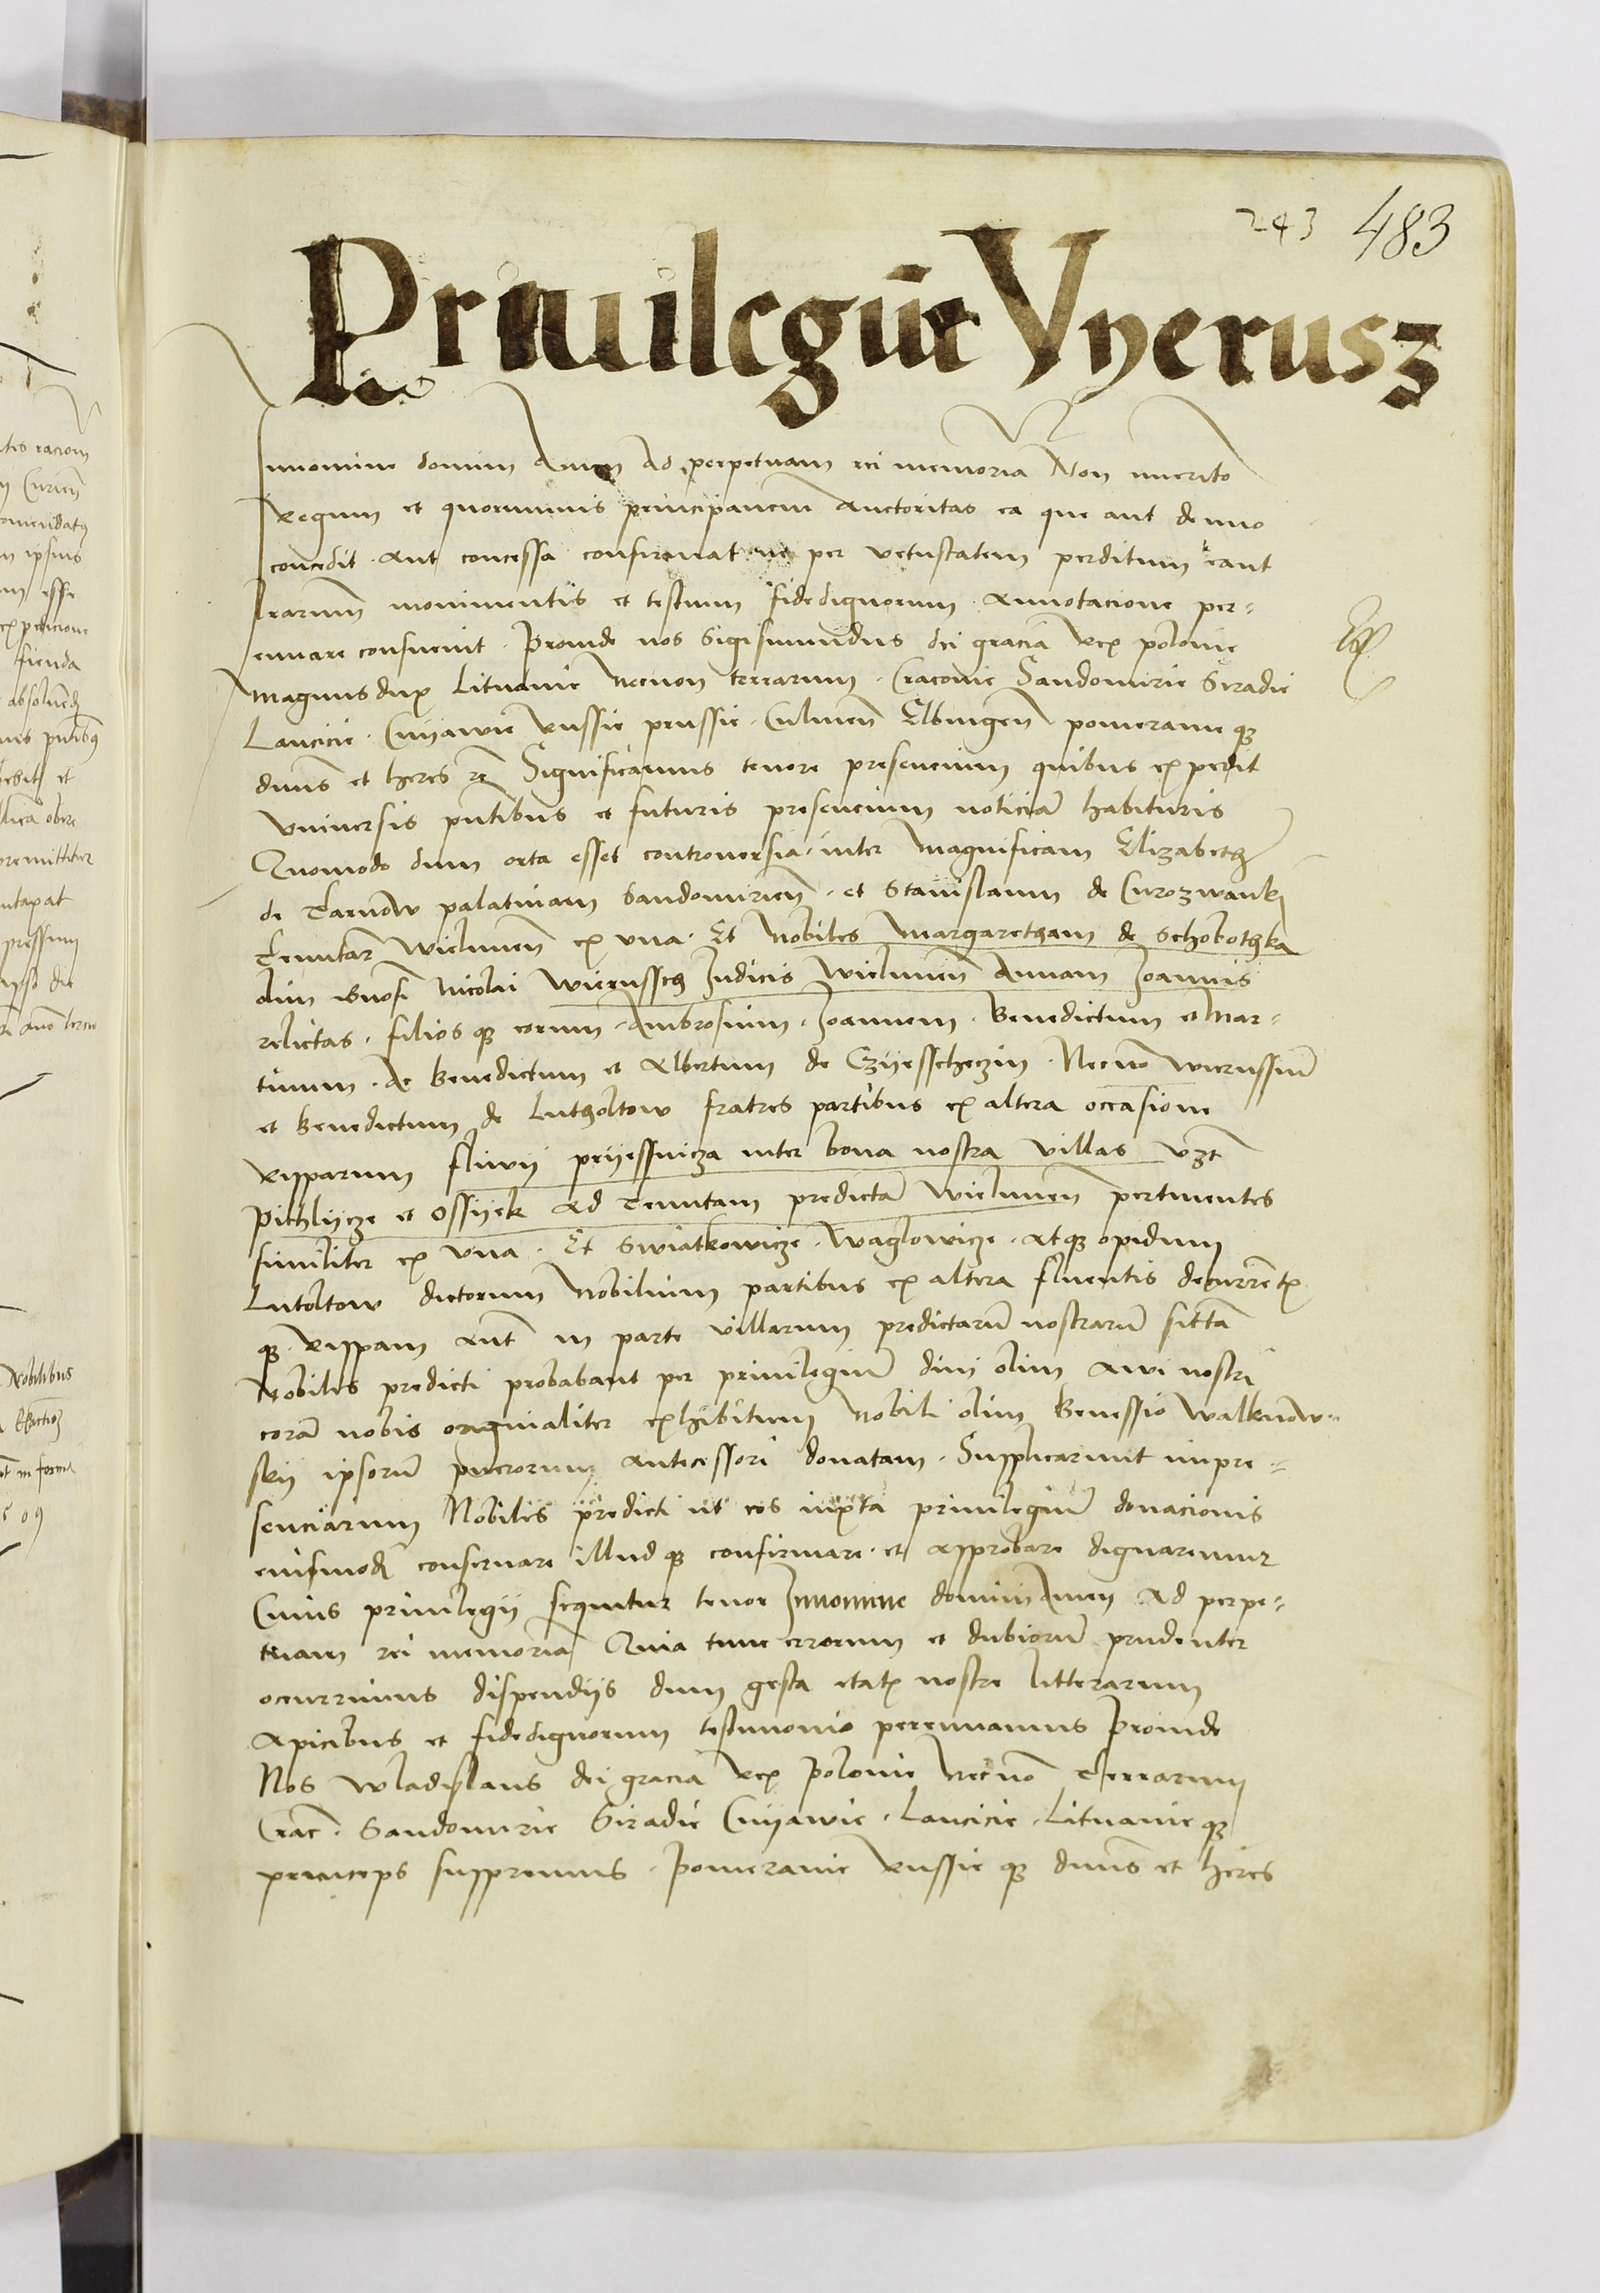 243 483
Priuilegiu Vyerusz
Innomine domini Amen Ad perpetuam rei memoria Non inmerito
Regum et quorumuis principancium Auctoritas ea que aut denuo
concedit aut concessa confirmat ne per vetustatem perditum eant
lrarum monimentis et testium fidedignorum Annotacione per-
ennare consueuit. Proinde nos Sigismundus dei gracia Rex polonie
Magnus dux Lituanie Necnon terrarum Cracouie Sandomirie Siradie
Lancicie Cuyawie Russie prussie Culmen Elbingen pomeranie q3
dnus et heres rc Significamus tenore presencium quibus expedit
vniuersis pntibus et futuris presencium noticia habituris
Quomodo dum orta esset controuersia inter Magnificam Elizabeth
de Tarnow palatinam Sandomirien et Stanislaum de Curozwanki
Tenutar Wielunen ex vna Et Nobiles Margaretham de Schobothka
olim Gnosi Nicolai Wierussch Judicis Wielunen Annam Joannis
relictas filios q3 eorum Ambrosium Joannem Benedictum et Mar-
tinum Ac Benedictum et Albertum de Czyesscheczin Necno Wierussium
et Benedictum de Lutholtow fratres partibus ex altera occasione
Ripparum fluvij pryessnicza inter bona nostra villas vzt
Pichlycze et Ossyek ad Tenutam predicta Wielunen pertinentes
similiter ex vna Et Swiatkowicze Waglowicze atq3 opidum
Lutoltow dictorum Nobilium partibus ex altera fluentis decurrentis
q3 Rippam aut in parte villarum predictaru nostraru sitta
Nobiles predicti probabant per priuilegiu diui olim Aui nostri
cora nobis originaliter exhibitum Nobili olim Benessio Walknow-
skij ipsoru puerorum antecessori donatam Supplicarunt inpre-
senciarum Nobiles predicti ut eos iuxta priuilegiu donacionis
eiusmodi conseruare illud q3 confirmare et approbare dignaremur
Cuius priuilegij sequitur tenor Innomine domini Amen Ad perpe-
tuam rei memoria Quia tunc errorum et dubioru prudenter
occurrimus dispendijs dum gesta etatis nostre litterarum
Apicibus et fidedignorum testimonio perennamus Proinde
Nos Wladislaus dei gracia Rex Polonie Necno Terrarum
Crac Sandomirie Siradie Cuyawie Lancicie Lituanie q3
princeps suppremus Pomeranie Russie q3 dnus et heres